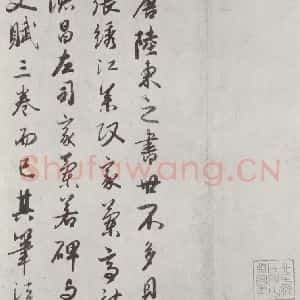 唐陸東之書世不多見
張綉江参政家蘭亭詩
演昌左司家蘭若碑与
文賦三卷而已其筆法
Shufawang.CN